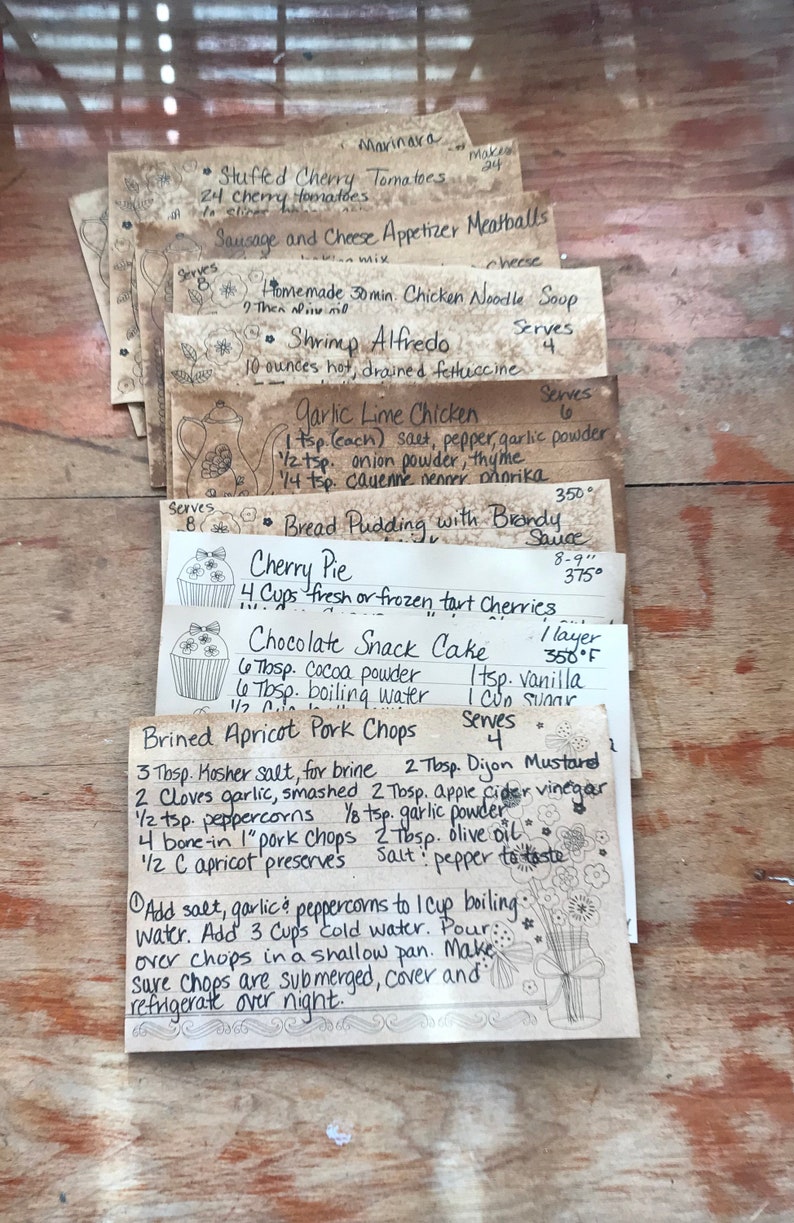 Marinara
Makes
24
Stuffed Cherry Tomatoes
24 cherry tomatoes
Sausage and Cheese Appetizer Meatballs
baking mix
cheese
Serves
8
Homemade 30 min. Chicken Noodle Soup
2 Tbsp olive oil
Serves
4
Shrimp Alfredo
10 ounces hot, drained fettuccine
Serves
6
Garlic Lime Chicken
1 tsp. (each) salt, pepper, garlic powder
1/2 tsp. onion powder, thyme
1/4 tsp. cayenne pepper paprika
350°
Serves
8
Bread Pudding with Brandy
Sauce
8-9"
375°
Cherry Pie
4 Cups fresh or frozen tart cherries
1 layer
350°F
Chocolate Snack Cake
6 Tbsp. cocoa powder 1 tsp. vanilla
6 Tbsp. boiling water 1 cup sugar
Serves
4
Brined Apricot Pork Chops
3 Tbsp. Kosher salt, for brine 2 Tbsp. Dijon Mustard
2 Cloves garlic, smashed 2 Tbsp. apple cider vinegar
1/2 tsp. peppercorns 1/8 tsp. garlic powder
4 bone-in 1" pork chops 2 Tbsp. olive oil
1/2 C apricot preserves Salt & pepper to taste
① Add salt, garlic & peppercorns to 1 cup boiling
water. Add 3 Cups cold water. Pour
over chops in a shallow pan. Make
sure chops are submerged, cover and
refrigerate over night.